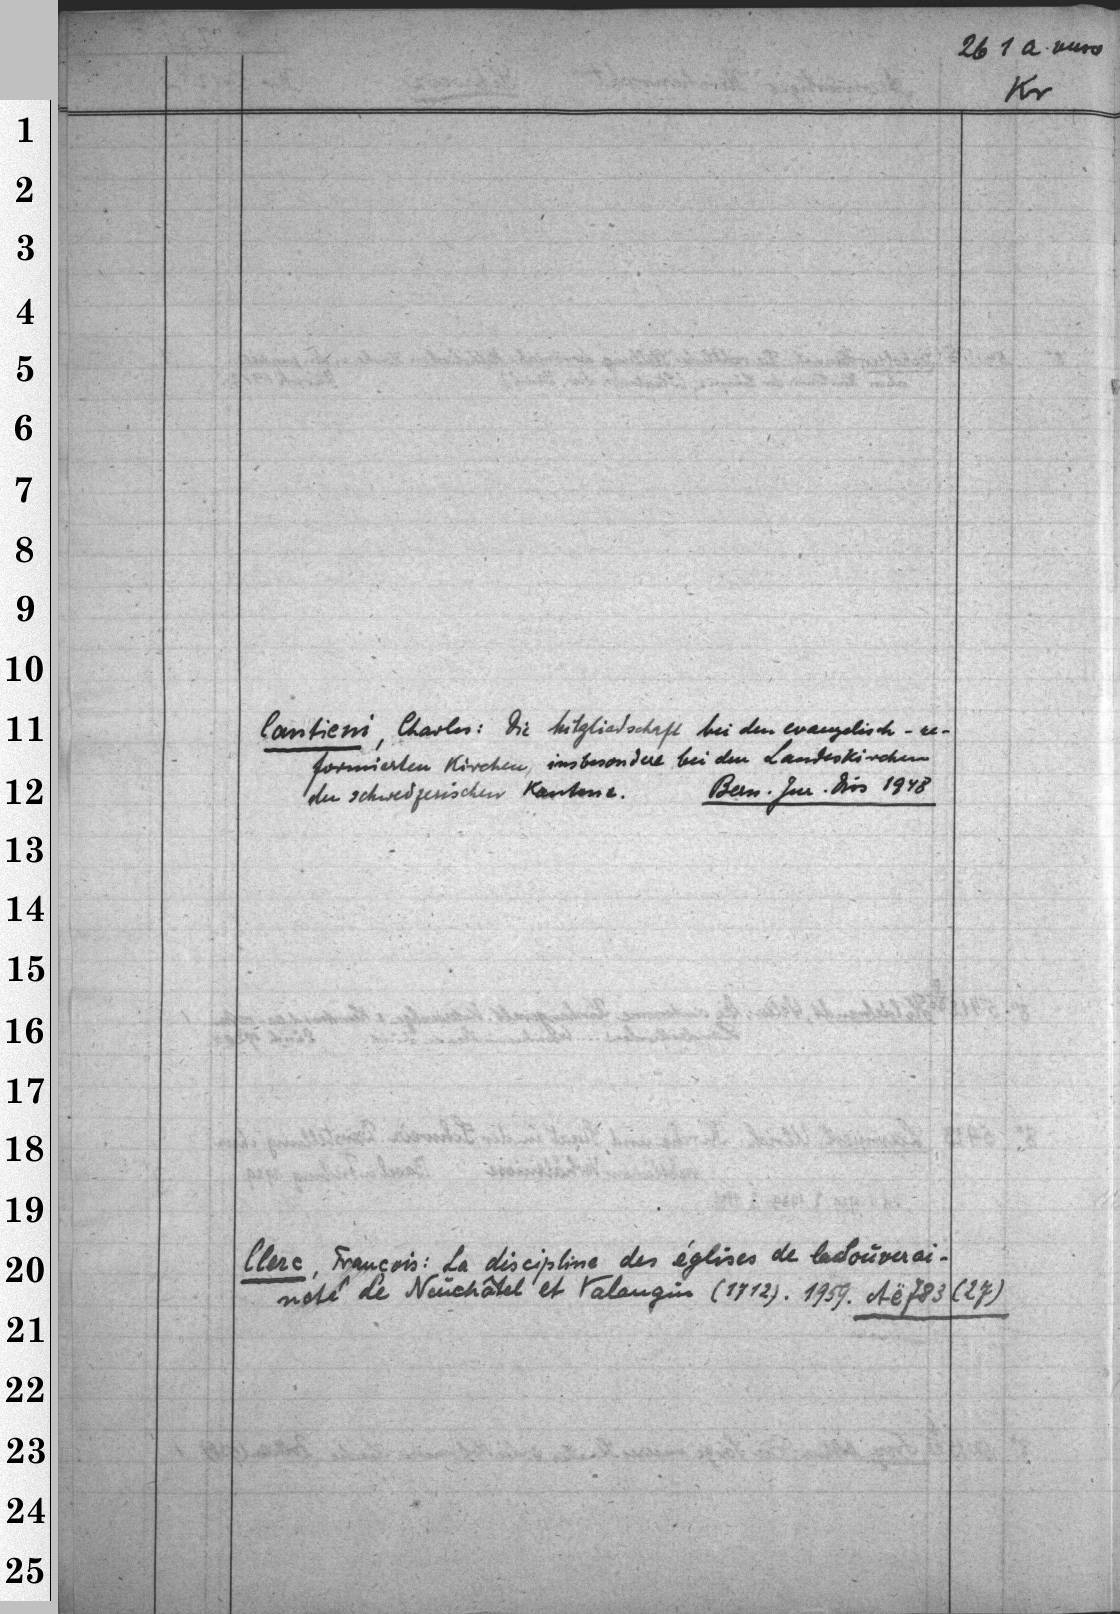 26 1 a
Kr
1
2
3
4
5
6
7
8
9
10
11
Cantieni, Charles: Die Mitgliedschaft bei den evangelisch-re-
formierten Kirchen, insbesondere bei den Landeskirchen
12
der schweizerischen Kantone. Bern. Jur. Diss 1948
13
14
15
16
17
18
19
20
Clerc, François: La discipline des églises de la Souverai-
neté de Neuchâtel et Valangin (1712). 1959. Aë 783 (27)
21
22
23
24
25